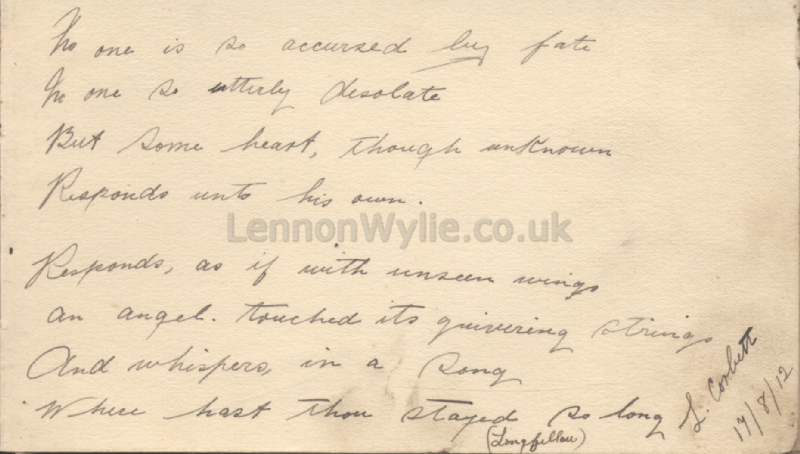 No one is so accursed by fate
No one so utterly desolate
But some heart, though unknown
Responds unto his own.
LennonWylie.co.uk
Responds, as if with unseen wings
an angel. touched its quivering strings
And whispers, in a song
Where hast thou stayed so long
(Longfellow)
L. Corbett
17/8/12